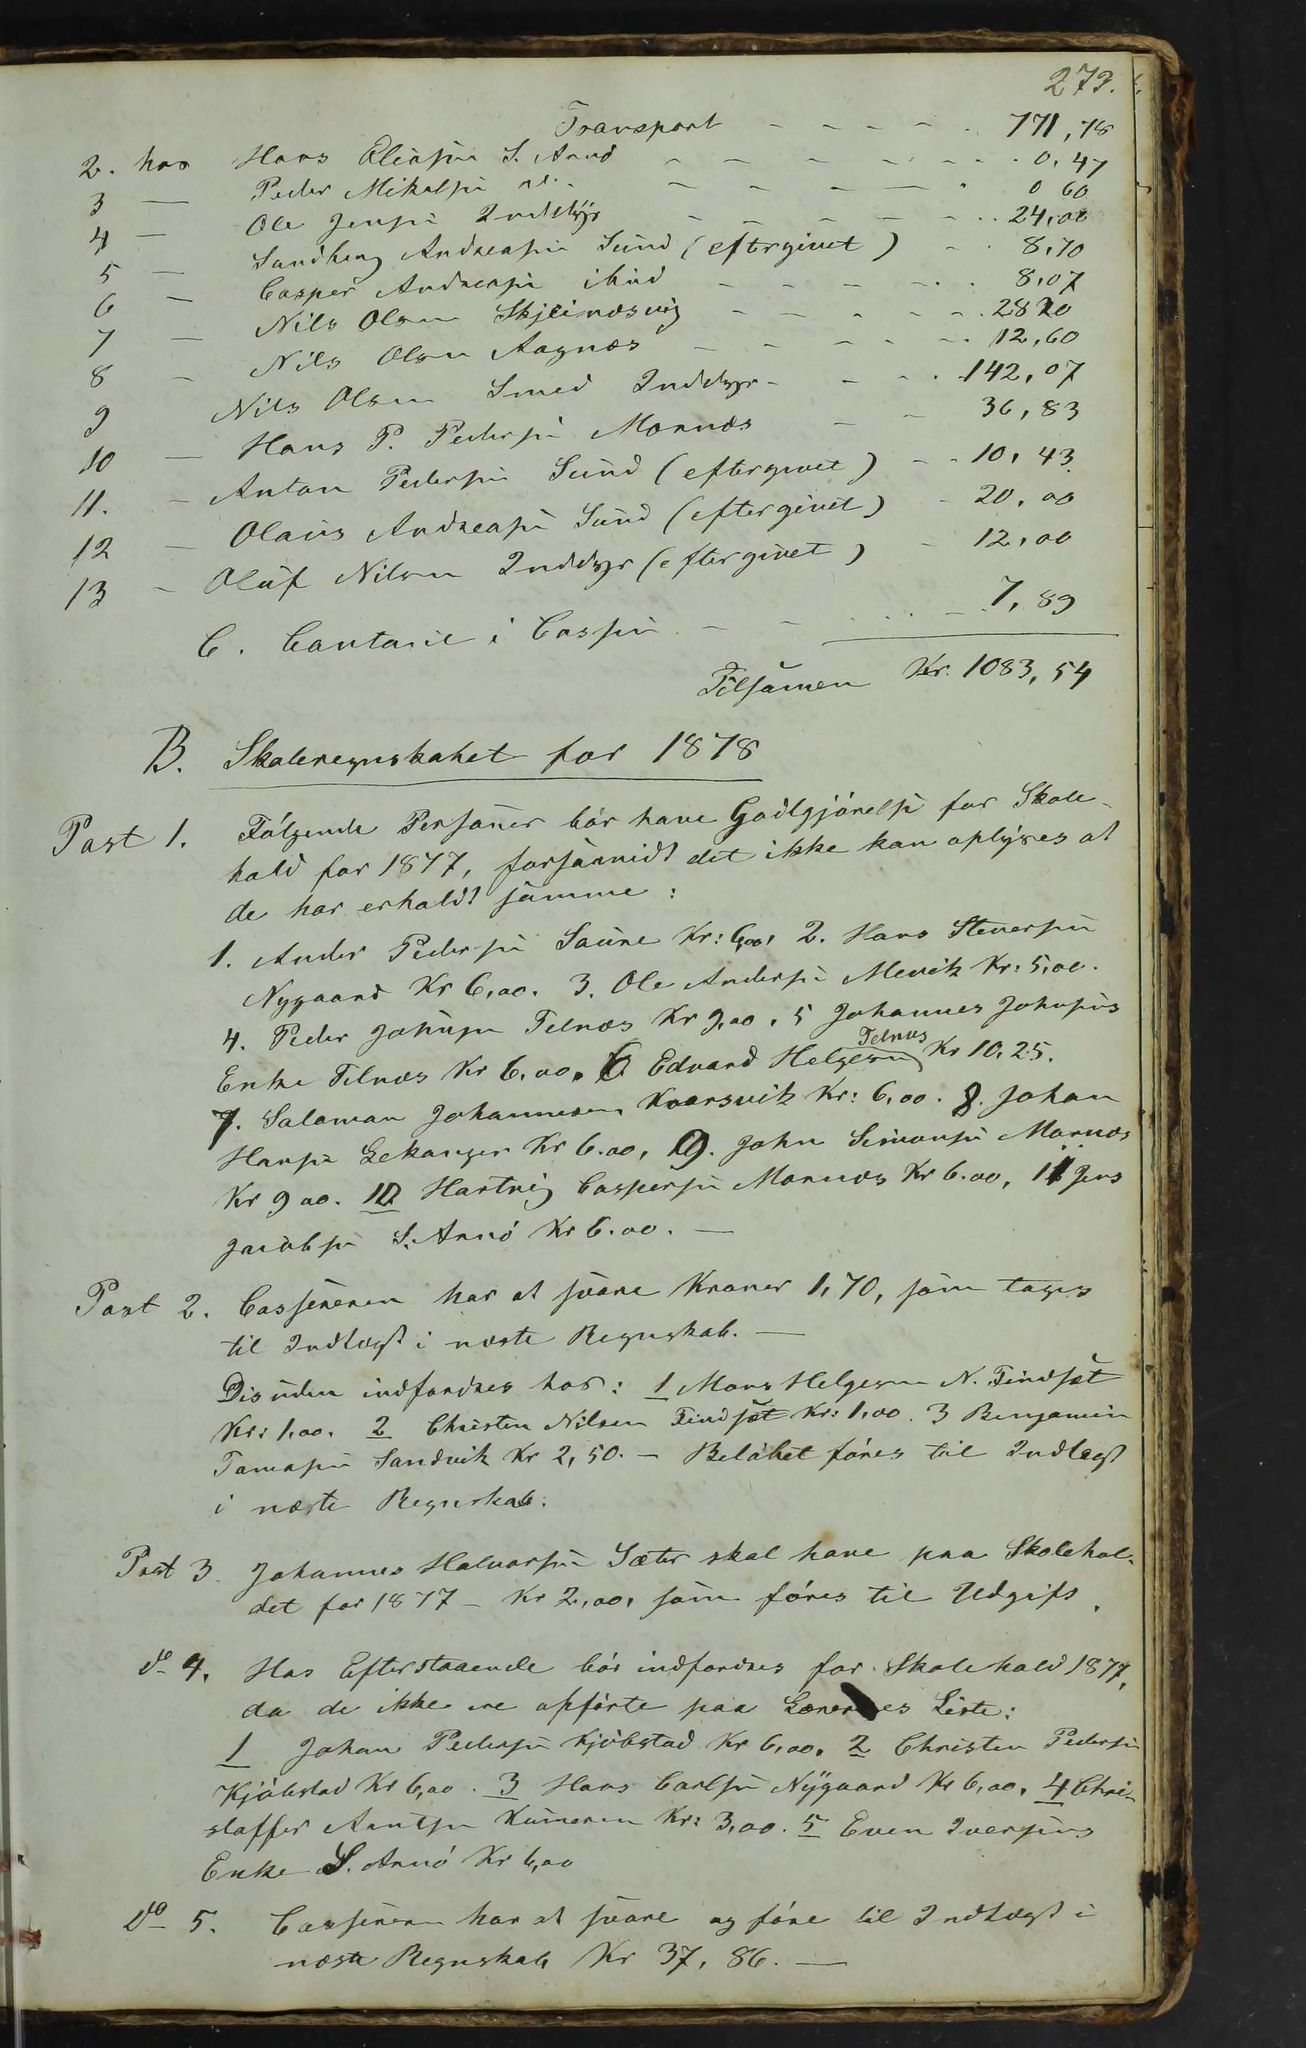 273.
Transport - - - - - 771,78
2. hos Hans Eliassen S. Arnø - - - - - 0,47
3 — Peder Mikalsen - - - - 0 60
4 — Ole Jensen Inddyr - - - - - 24,00
5 — Sandberg Andreassen Sund (eftergivet) - - 8,70
6 — Casper Andreassen ibid - - - - - 8,07
7 — Nils Olsen Skjeinæsvig - - - - - 28 20
8 - Nils Olsen Aagnæs - - - - - 12,60
9 Nils Olsen Smed Inddyr - - - 142,07
10 — Hans P. Pedersen Mornæs - - 36,83
11. - Anton Pedersen Sund (eftergivet) - - 10,43
12 — Olaus Andreassen Sund (eftergivet) - 20,00
13 - Oluf Nilsen Inddyr (eftergivet) - 12,00
C. Contant i Cassen - - - 7,89
Tilsamen Kr. 1083,54
B. Skoleregnskabet for 1878
Post 1. Følgende Personer bør have Godtgjørelse for Skole-
hold for 1877, forsaavidt det ikke kan oplyses at
de har erholdt samme:
1. Anders Pedersen Saure Kr: 6,00, 2. Hans Stenersen
Nygaard Kr 6,00. 3. Ole Andersen Mevik Kr: 5,00.
4. Peder Johnsen Telnæs Kr 9,00, 5 Johannes Johnsens
Enke Telnæs Kr 6,00. 6 Edvard Helgesen Telnæs Kr 10,25.
7. Salamon Johannesen Kvarsvik Kr: 6,00. 8. Johan
Hansen Lekanger Kr 6.00, 9. John Simonsen Mornæs
Kr 9 00. 10 Hartvig Caspersen Mornæs Kr 6.00, 11 Jens
Jacobsen S. Arnø Kr 6.00. —
Post 2. Cassereren har at svare Kroner 1,70, som tages
til Indtægt i næste Regnskab. —
Desuden indfordres hos: 1 Mons Helgesen N. Findset
Kr: 1,00. 2 Christen Nilsen Findset Kr: 1,00. 3 Benjamin
Tomassen Sandvik Kr 2,50. — Beløbet føres til Indtægt
i næste Regnskab.
Post 3. Johannes Halvorsen Sæter skal have paa Skolehol-
det for 1877 - Kr 2,00, som føres til Udgift.
do 4. Hos Efterstaaende bør indfordres for Skolehold 1877,
da de ikke ere opførte paa Lærernes Liste:
1 Johan Pedersen Kjøbstad Kr 6,00. 2 Christen Pedersen
Kjøbstad Kr 6,00. 3 Hans Carlsen Nygaard Kr 6,00. 4 Chri-
stoffer Arntsen Kr: 3,00. 5 Even Iversens
Enke S. Arnø Kr 6,00
do 5. Cassereren har at svare og føre til Indtægt i
næste Regnskab Kr 37,86. —